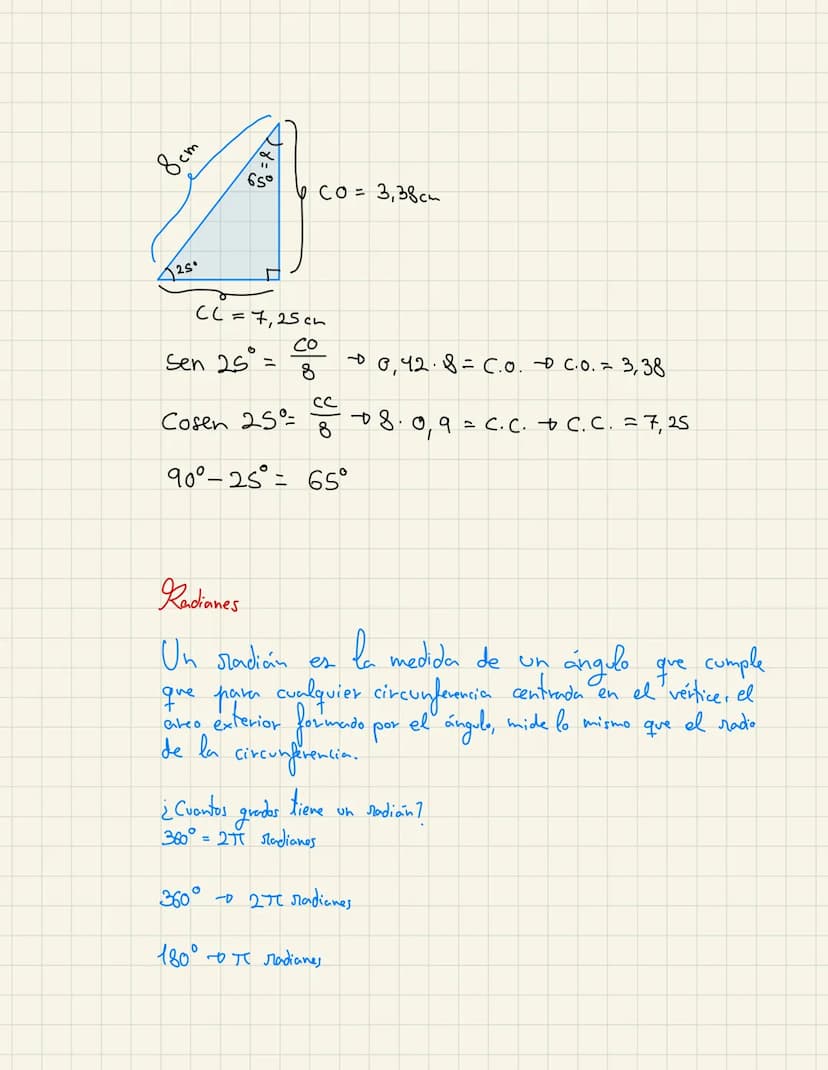 8cm
65º = α
CO = 3,38cm
25º
CC = 7,25cm
Sen 25º = CO/8 → 0,42 · 8 = C.O. → C.O. = 3,38
Cosen 25º = CC/8 → 8 · 0,9 = C.C. → C.C. = 7,25
90º - 25º = 65º
Radianes
Un radián es la medida de un ángulo que cumple
que para cualquier circunferencia centrada en el vértice, el
arco exterior formado por el ángulo, mide lo mismo que el radio
de la circunferencia.
¿Cuantos grados tiene un radián?
360º = 2π radianes
360º → 2π radianes
180º → π radianes